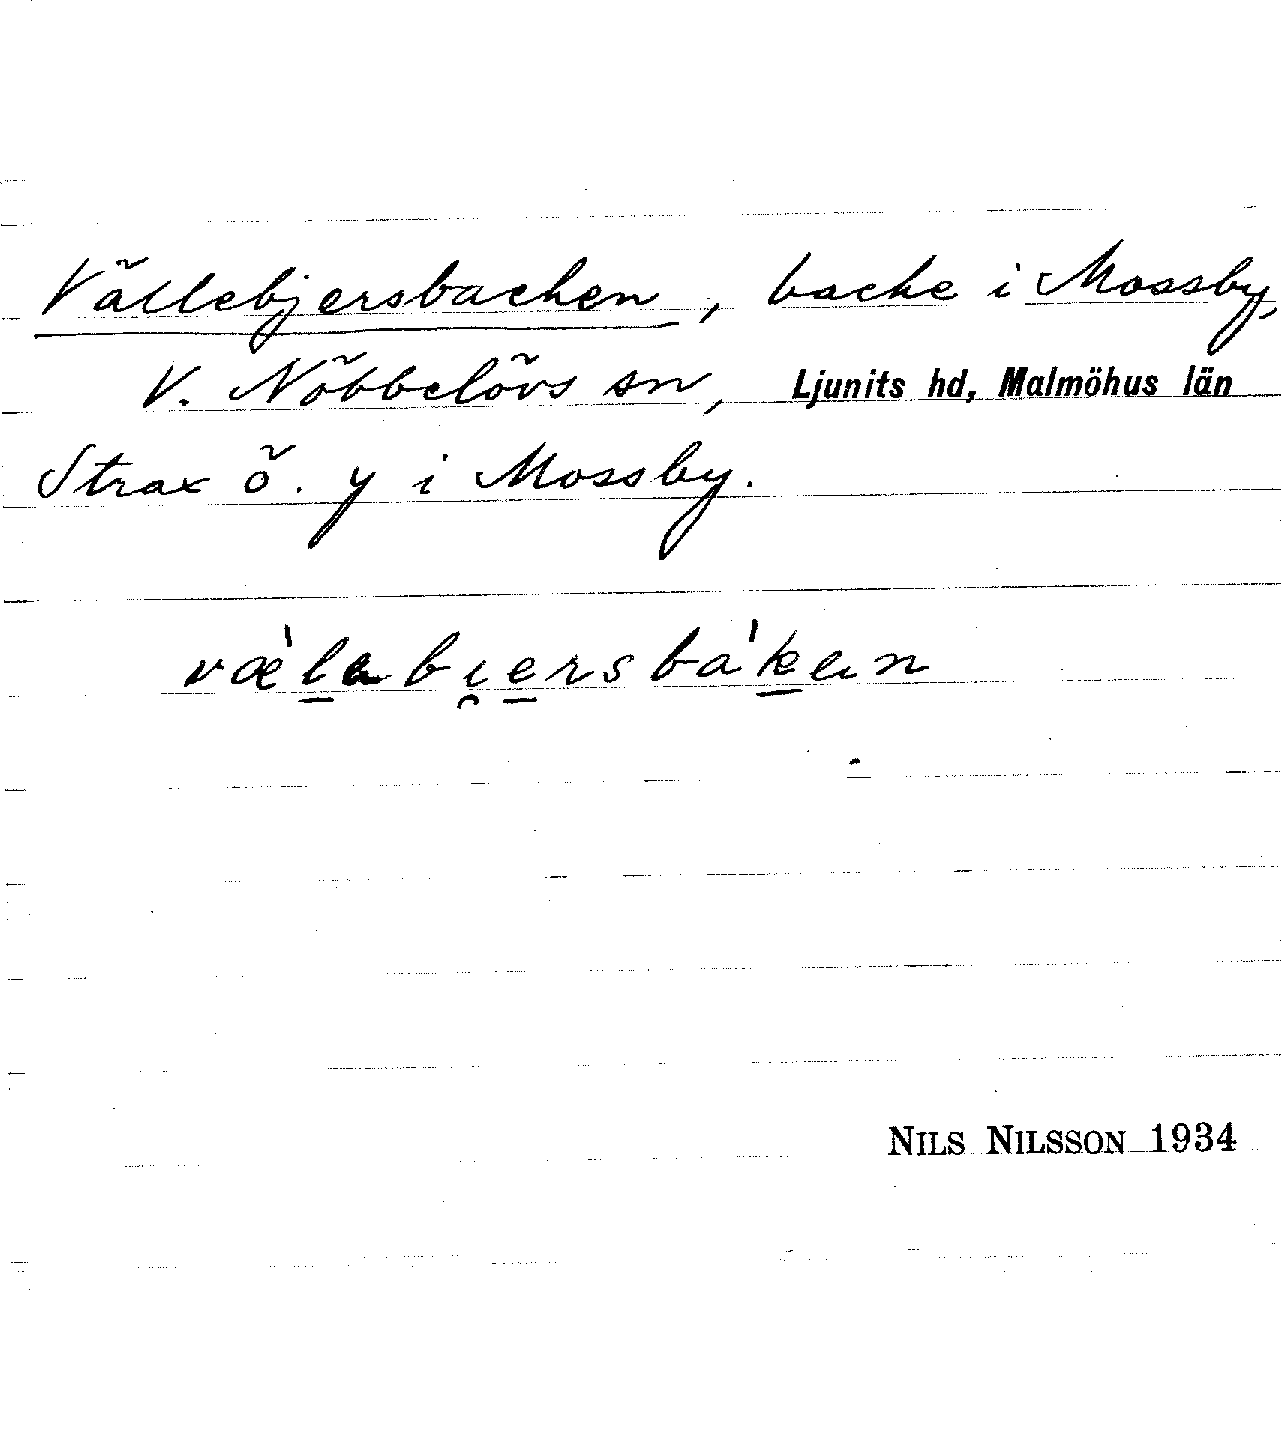 Vällebjersbacken, backe i Mossby,
V. Nöbbelövs sn, Ljunits hd, Malmöhus län
Strax ö. y i Mossby.
væ̀l̲əbi̯e̲rsbá'k̲ən
NILS NILSSON 1934